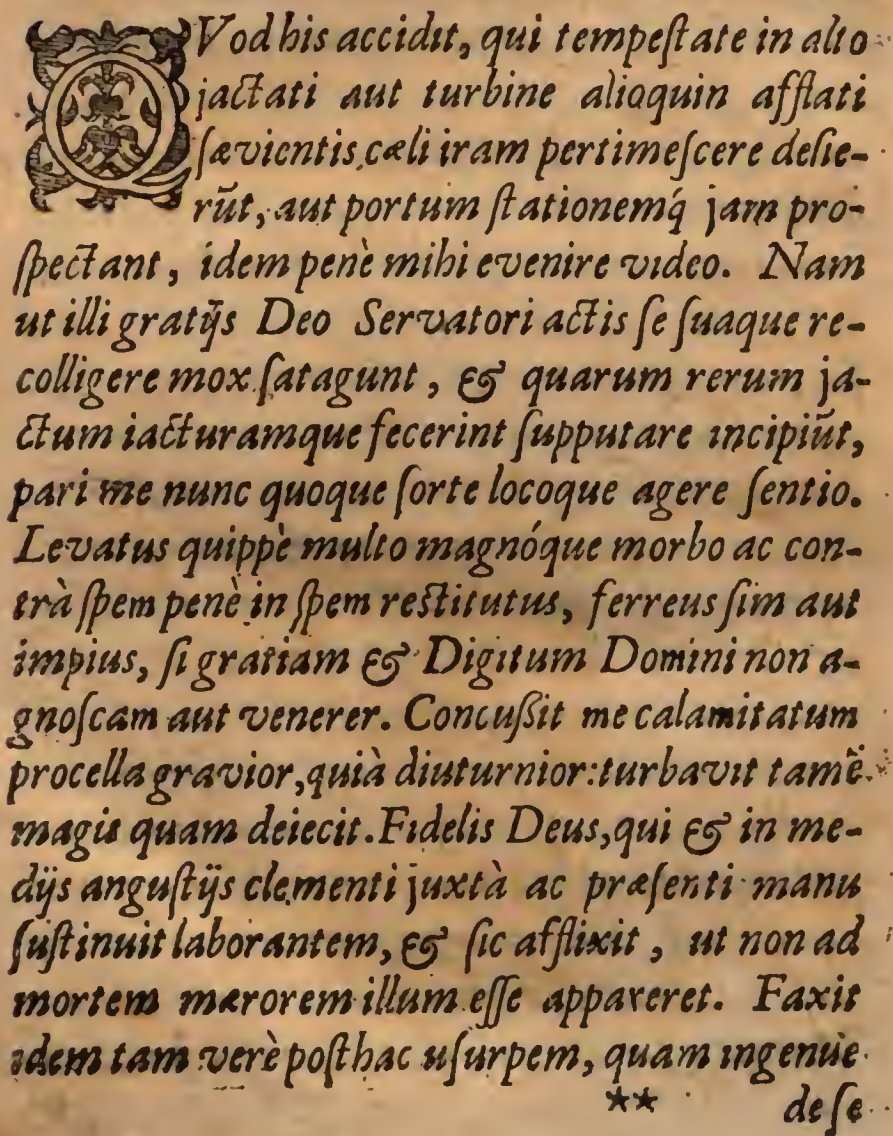 QVod his accidit, qui tempeſtate in alto
jactati aut turbine alioquin afflati
ſævientis cæli iram pertimeſcere deſie-
rũt, aut portum ſtationemq́ jam pro-
ſpectant, idem penè mihi evenire video. Nam
ut illi gratijs Deo Servatori actis ſe ſuaque re-
colligere mox ſatagunt, & quarum rerum ja-
ctum iacturamque fecerint ſupputare incipiũt,
pari me nunc quoque ſorte locoque agere ſentio.
Levatus quippè multo magnóque morbo ac con-
trà ſpem penè in ſpem reſtitutus, ferreus ſim aut
impius, ſi gratiam & Digitum Domini non a-
gnoſcam aut venerer. Concuſſit me calamitatum
procella gravior, quià diuturnior: turbavit tamẽ
magis quam deiecit. Fidelis Deus, qui & in me-
dijs anguſtijs clementi juxtà ac præſenti manu
ſuſtinuit laborantem, & ſic afflixit, ut non ad
mortem mærorem illum eſſe appareret. Faxit
idem tam verè poſthac uſurpem, quam ingenùe
** de ſe